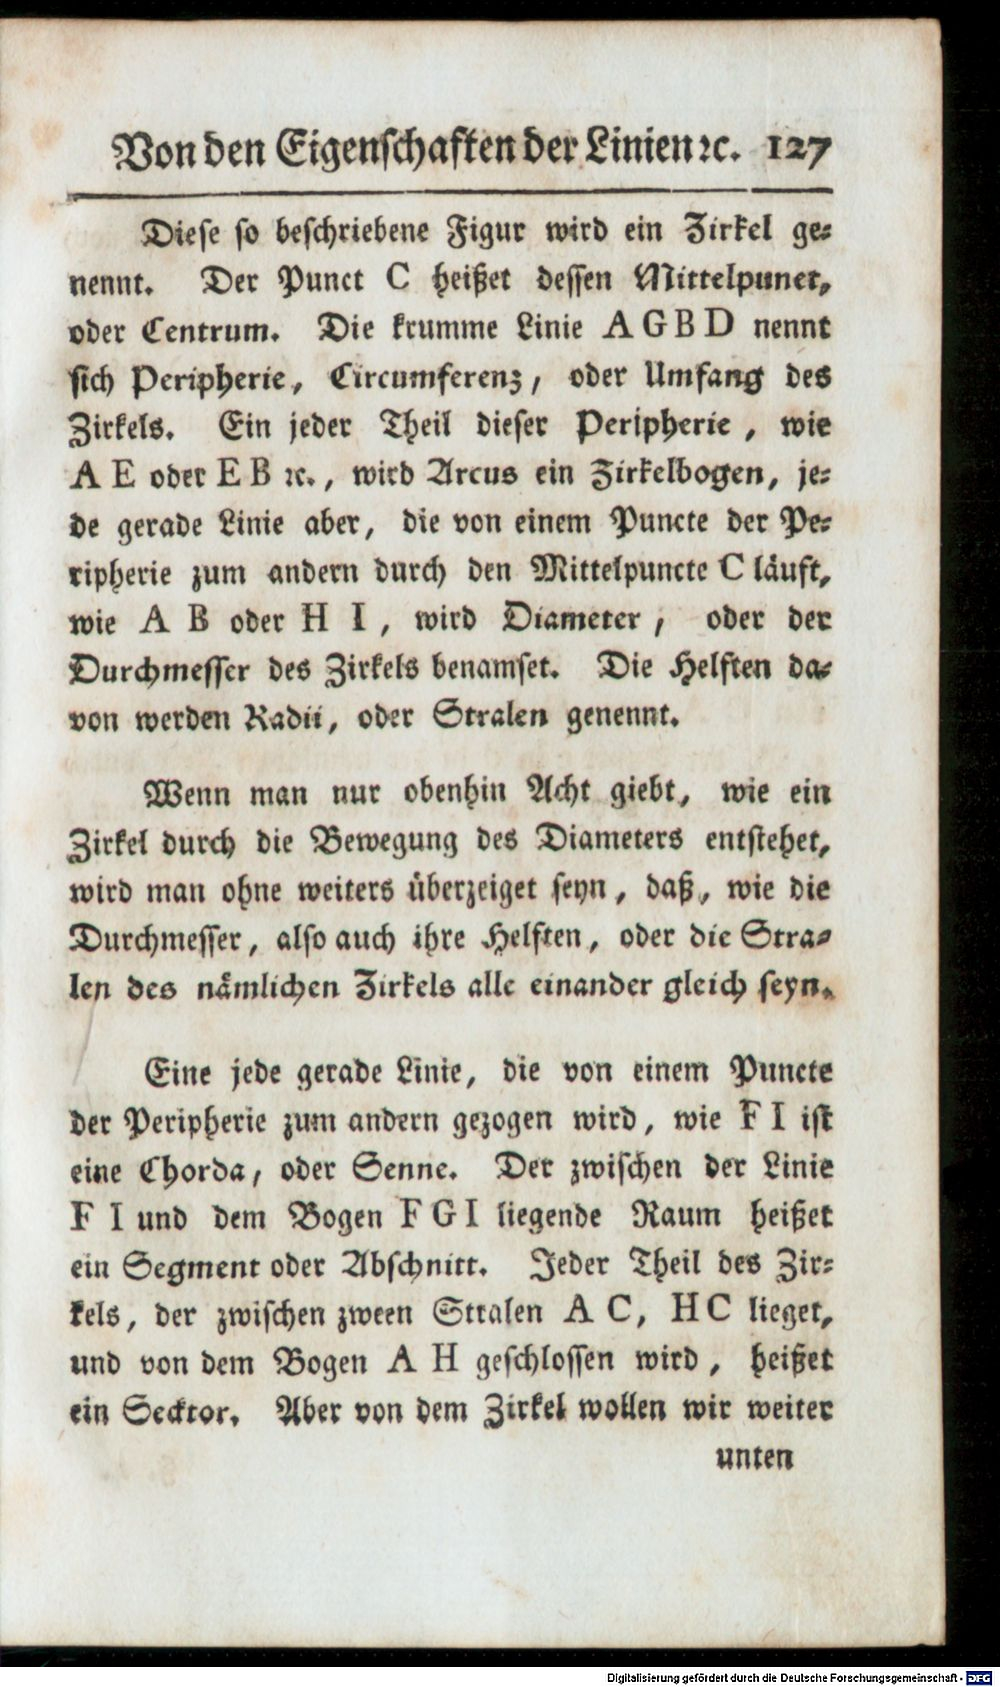 Von den Eigenschaften der Linien ꝛc. 127
Diese so beschriebene Figur wird ein Zirkel ge⸗
nennt. Der Punct C heißet dessen Mittelpunct,
oder Centrum. Die krumme Linie A G B D nennt
sich Peripherie, Circumferenz, oder Umfang des
Zirkels. Ein jeder Theil dieser Peripherie, wie
A E oder E B ꝛc., wird Arcus ein Zirkelbogen, je⸗
de gerade Linie aber, die von einem Puncte der Pe⸗
ripherie zum andern durch den Mittelpuncte C läuft,
wie A B oder H I, wird Diameter, oder der
Durchmesser des Zirkels benamset. Die Helften da⸗
von werden Radii, oder Stralen genennt.
Wenn man nur obenhin Acht giebt, wie ein
Zirkel durch die Bewegung des Diameters entstehet,
wird man ohne weiters überzeiget seyn, daß, wie die
Durchmesser, also auch ihre Helften, oder die Stra⸗
len des nämlichen Zirkels alle einander gleich seyn.
Eine jede gerade Linie, die von einem Puncte
der Peripherie zum andern gezogen wird, wie F I ist
eine Chorda, oder Senne. Der zwischen der Linie
F I und dem Bogen F G I liegende Raum heißet
ein Segment oder Abschnitt. Jeder Theil des Zir⸗
kels, der zwischen zween Stralen A C, H C lieget,
und von dem Bogen A H geschlossen wird, heißet
ein Secktor. Aber von dem Zirkel wollen wir weiter
unten
Digitalisierung gefördert durch die Deutsche Forschungsgemeinschaft - DFG